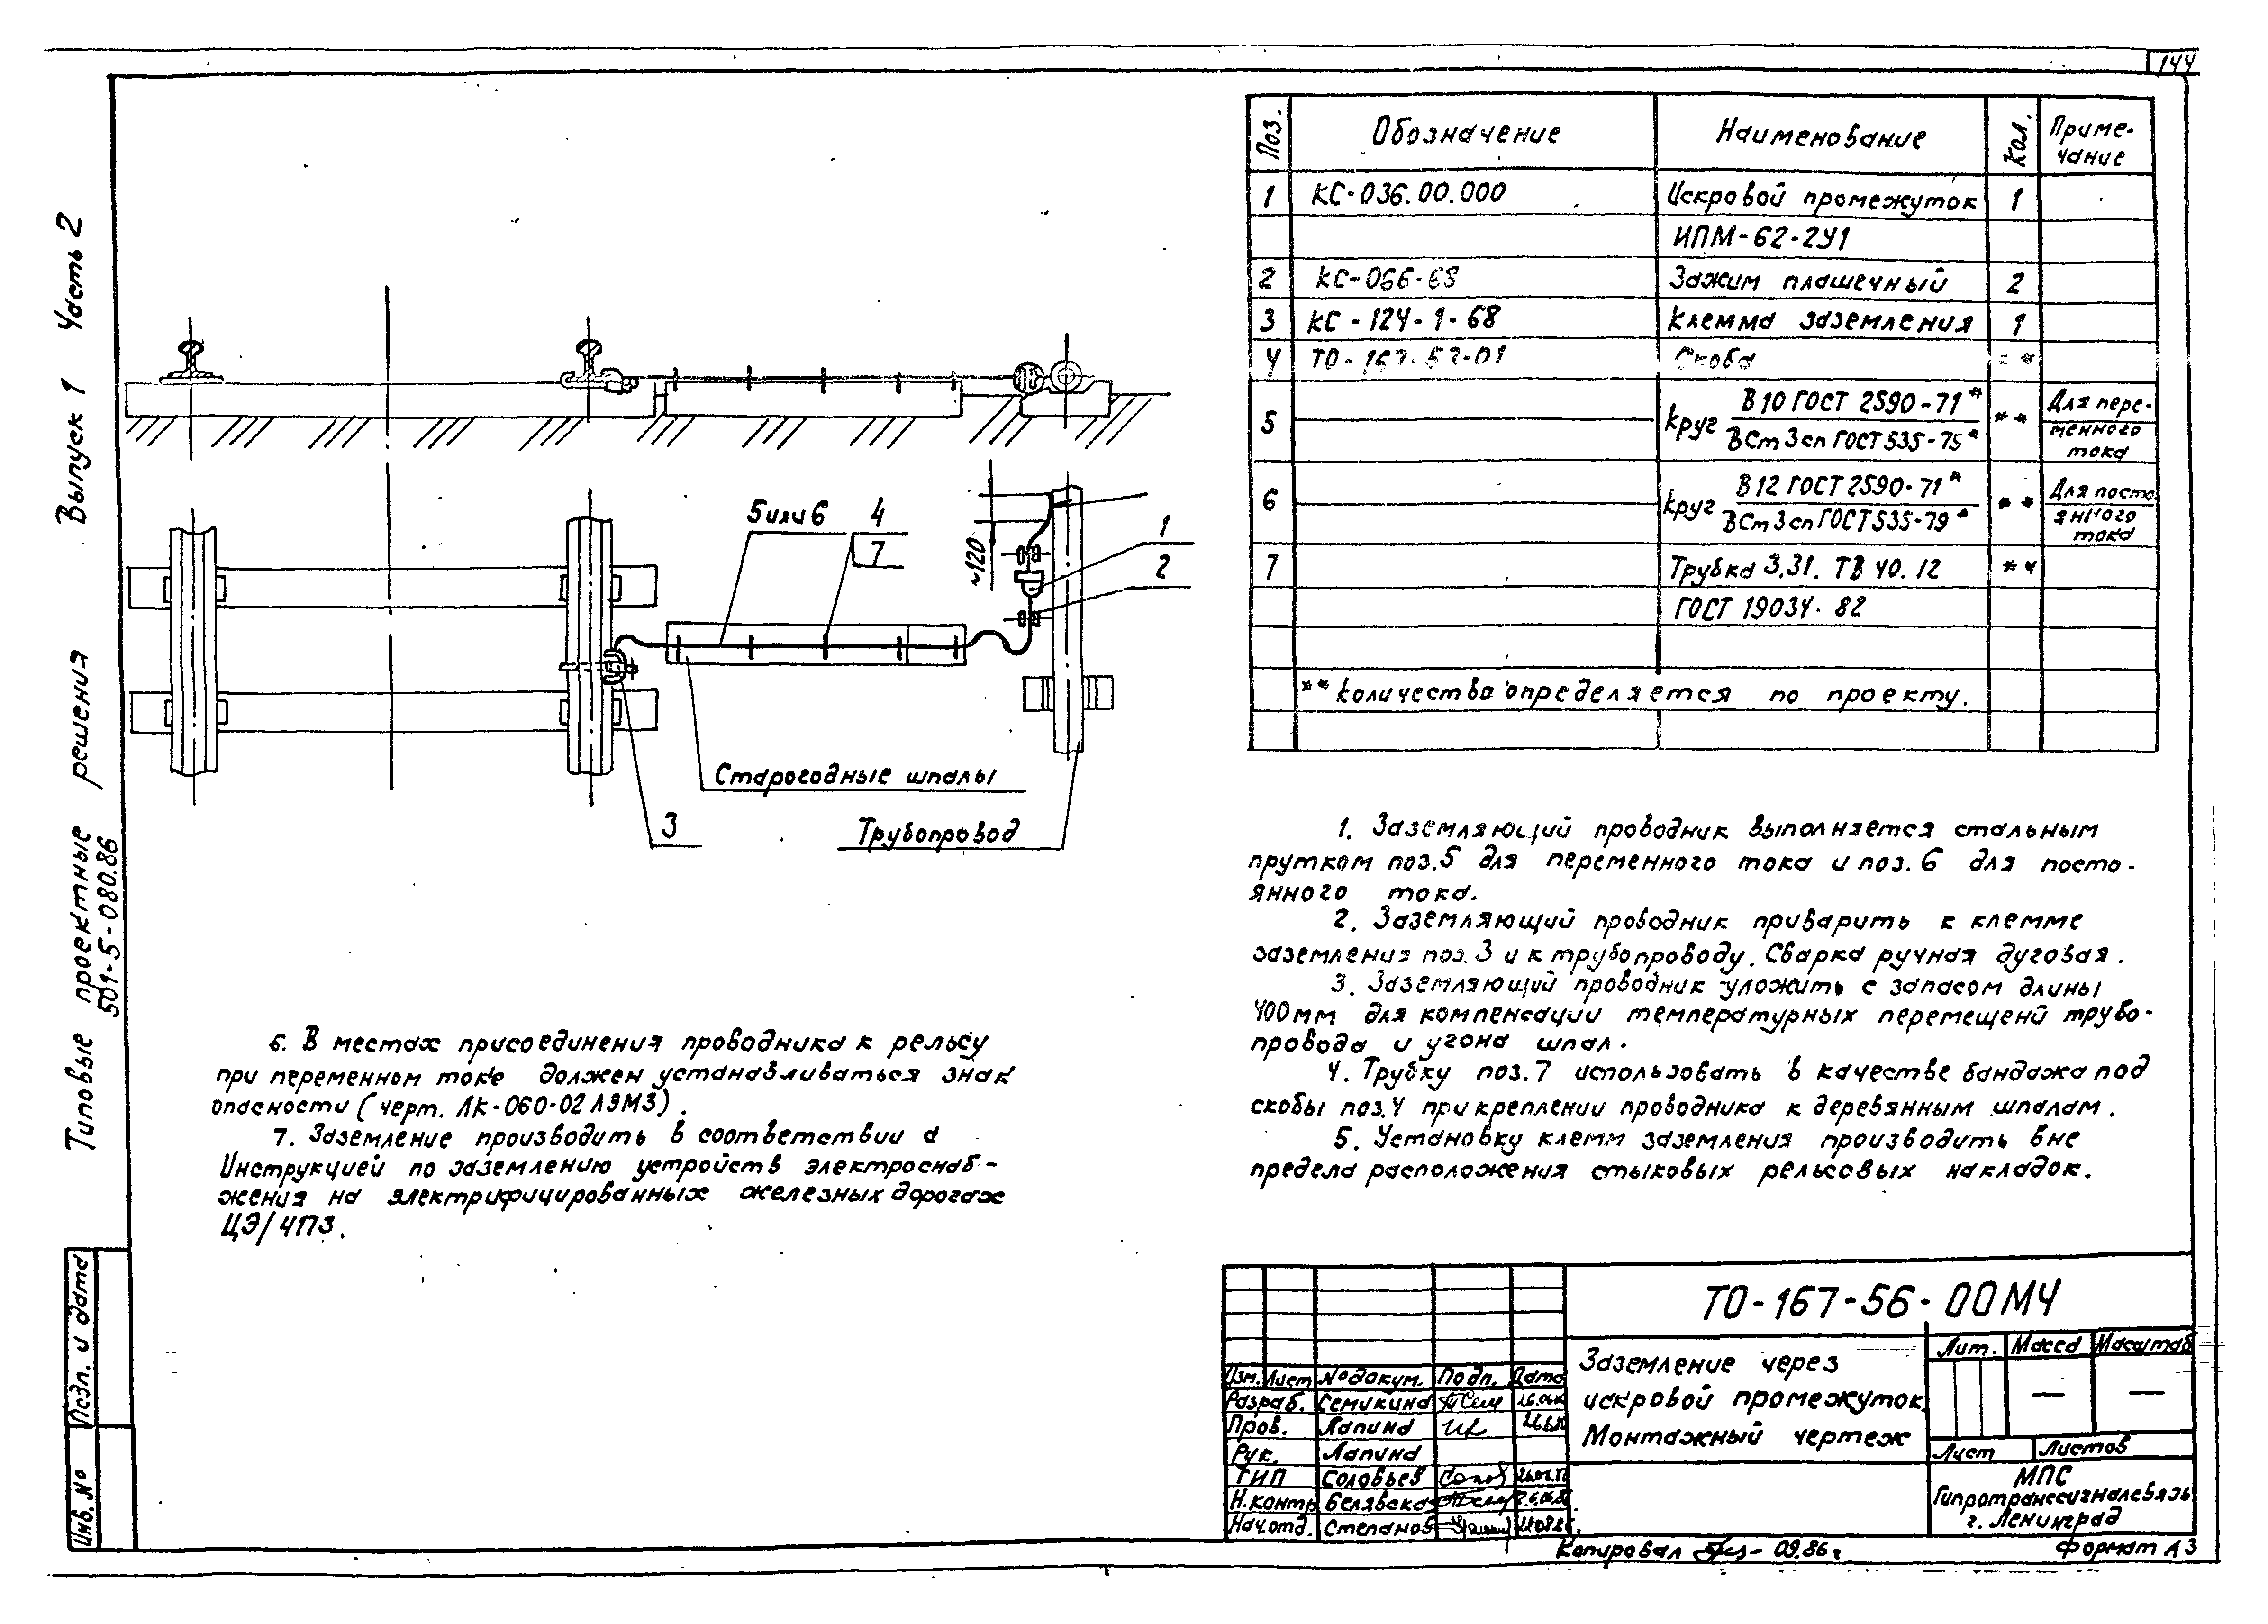 144
Типовые проектные решения Выпуск 1 Часть 2
501-5-080.86
Подп. и дата
Инв. №
5 или 6
4
7
1
2
~120
3
Старогодные шпалы
Трубопровод
Поз. Обозначение Наименование Кол. Приме-
чание
1 КС-036.00.000 Искровой промежуток 1
ИПМ-62-2У1
2 КС-066-68 Зажим плашечный 2
3 КС-124-1-68 Клемма заземления 1
4 ТО-167-57-01 Скоба **
5 Круг В10 ГОСТ 2590-71* ** Для пере-
ВСт3сп ГОСТ 535-79* менного
тока
6 Круг В12 ГОСТ 2590-71* ** Для посто-
ВСт3сп ГОСТ 535-79* янного
тока
7 Трубка 3,31. ТВ 40. 12 **
ГОСТ 19034-82
** Количество определяется по проекту.
1. Заземляющий проводник выполняется стальным
прутком поз.5 для переменного тока и поз.6 для посто-
янного тока.
2. Заземляющий проводник приварить к клемме
заземления поз.3 и к трубопроводу. Сварка ручная дуговая.
3. Заземляющий проводник уложить с запасом длины
400мм для компенсации температурных перемещений трубо-
провода и угона шпал.
4. Трубку поз.7 использовать в качестве бандажа под
скобы поз.4 при креплении проводника к деревянным шпалам.
5. Установку клемм заземления производить вне
предела расположения стыковых рельсовых накладок.
6. В местах присоединения проводника к рельсу
при переменном токе должен устанавливаться знак
опасности (черт. ЛК-060-02 ЛЭМЗ).
7. Заземление производить в соответствии с
Инструкцией по заземлению устройств электроснаб-
жения на электрифицированных железных дорогах
ЦЭ/4173.
ТО-167-56-00МЧ
Заземление через
искровой промежуток.
Монтажный чертеж
Лит. Масса Масштаб
— —
Лист Листов
МПС
Гипротранссигналсвязь
г. Ленинград
Изм. Лист № докум. Подп. Дата
Разраб. Семикина
Пров. Лапина
Рук. Лапина
ГИП Соловьев
Н.контр. Белявская
Нач.отд. Степанов
Копировал 09.86г
Формат А3